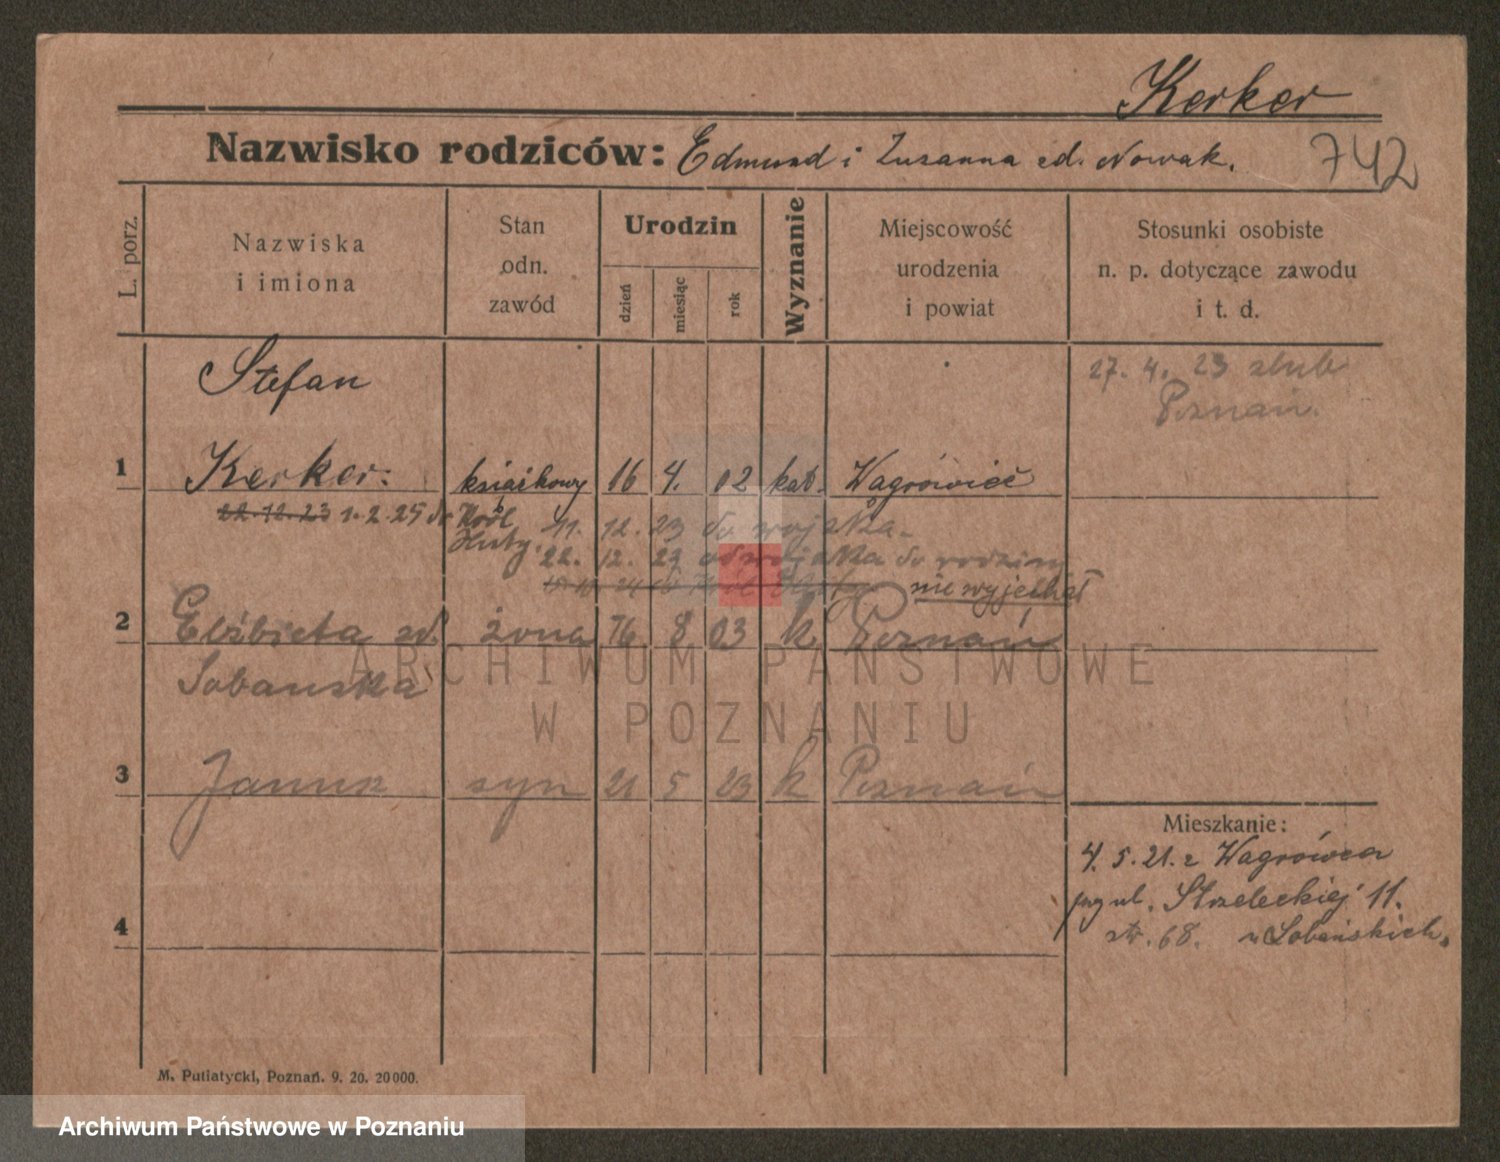 Kerker
Nazwisko rodziców: Edmund i Zuzanna zd. Nowak. 742
L. porz.
Nazwiska
i imiona
Stan
odn.
zawód
Urodzin
dzień
miesiąc
rok
Wyznanie
Miejscowość
urodzenia
i powiat
Stosunki osobiste
n. p. dotyczące zawodu
i t. d.
Stefan
27. 4. 23 ślub
Poznań.
1 Kerker. książkowy 16 4. 02 kat. Wągrówiec
22.12.23 1.2.25 do Król
Huty. 11. 12. 23 do wojska.
22. 12. 23 od wojska do rodziny
nie wyjechał
2 Elżbieta zd. żona 16 8 03 k Poznań
Sobańska
3 Janusz syn 21 5 23 k Poznań
Mieszkanie:
4. 5. 21. z Wągrówca
przy ul. Strzeleckiej 11.
str. 68. u Sobańskich.
4
ARCHIWUM PAŃSTWOWE
W POZNANIU
M. Putiatycki, Poznań. 9. 20. 20000.
Archiwum Państwowe w Poznaniu